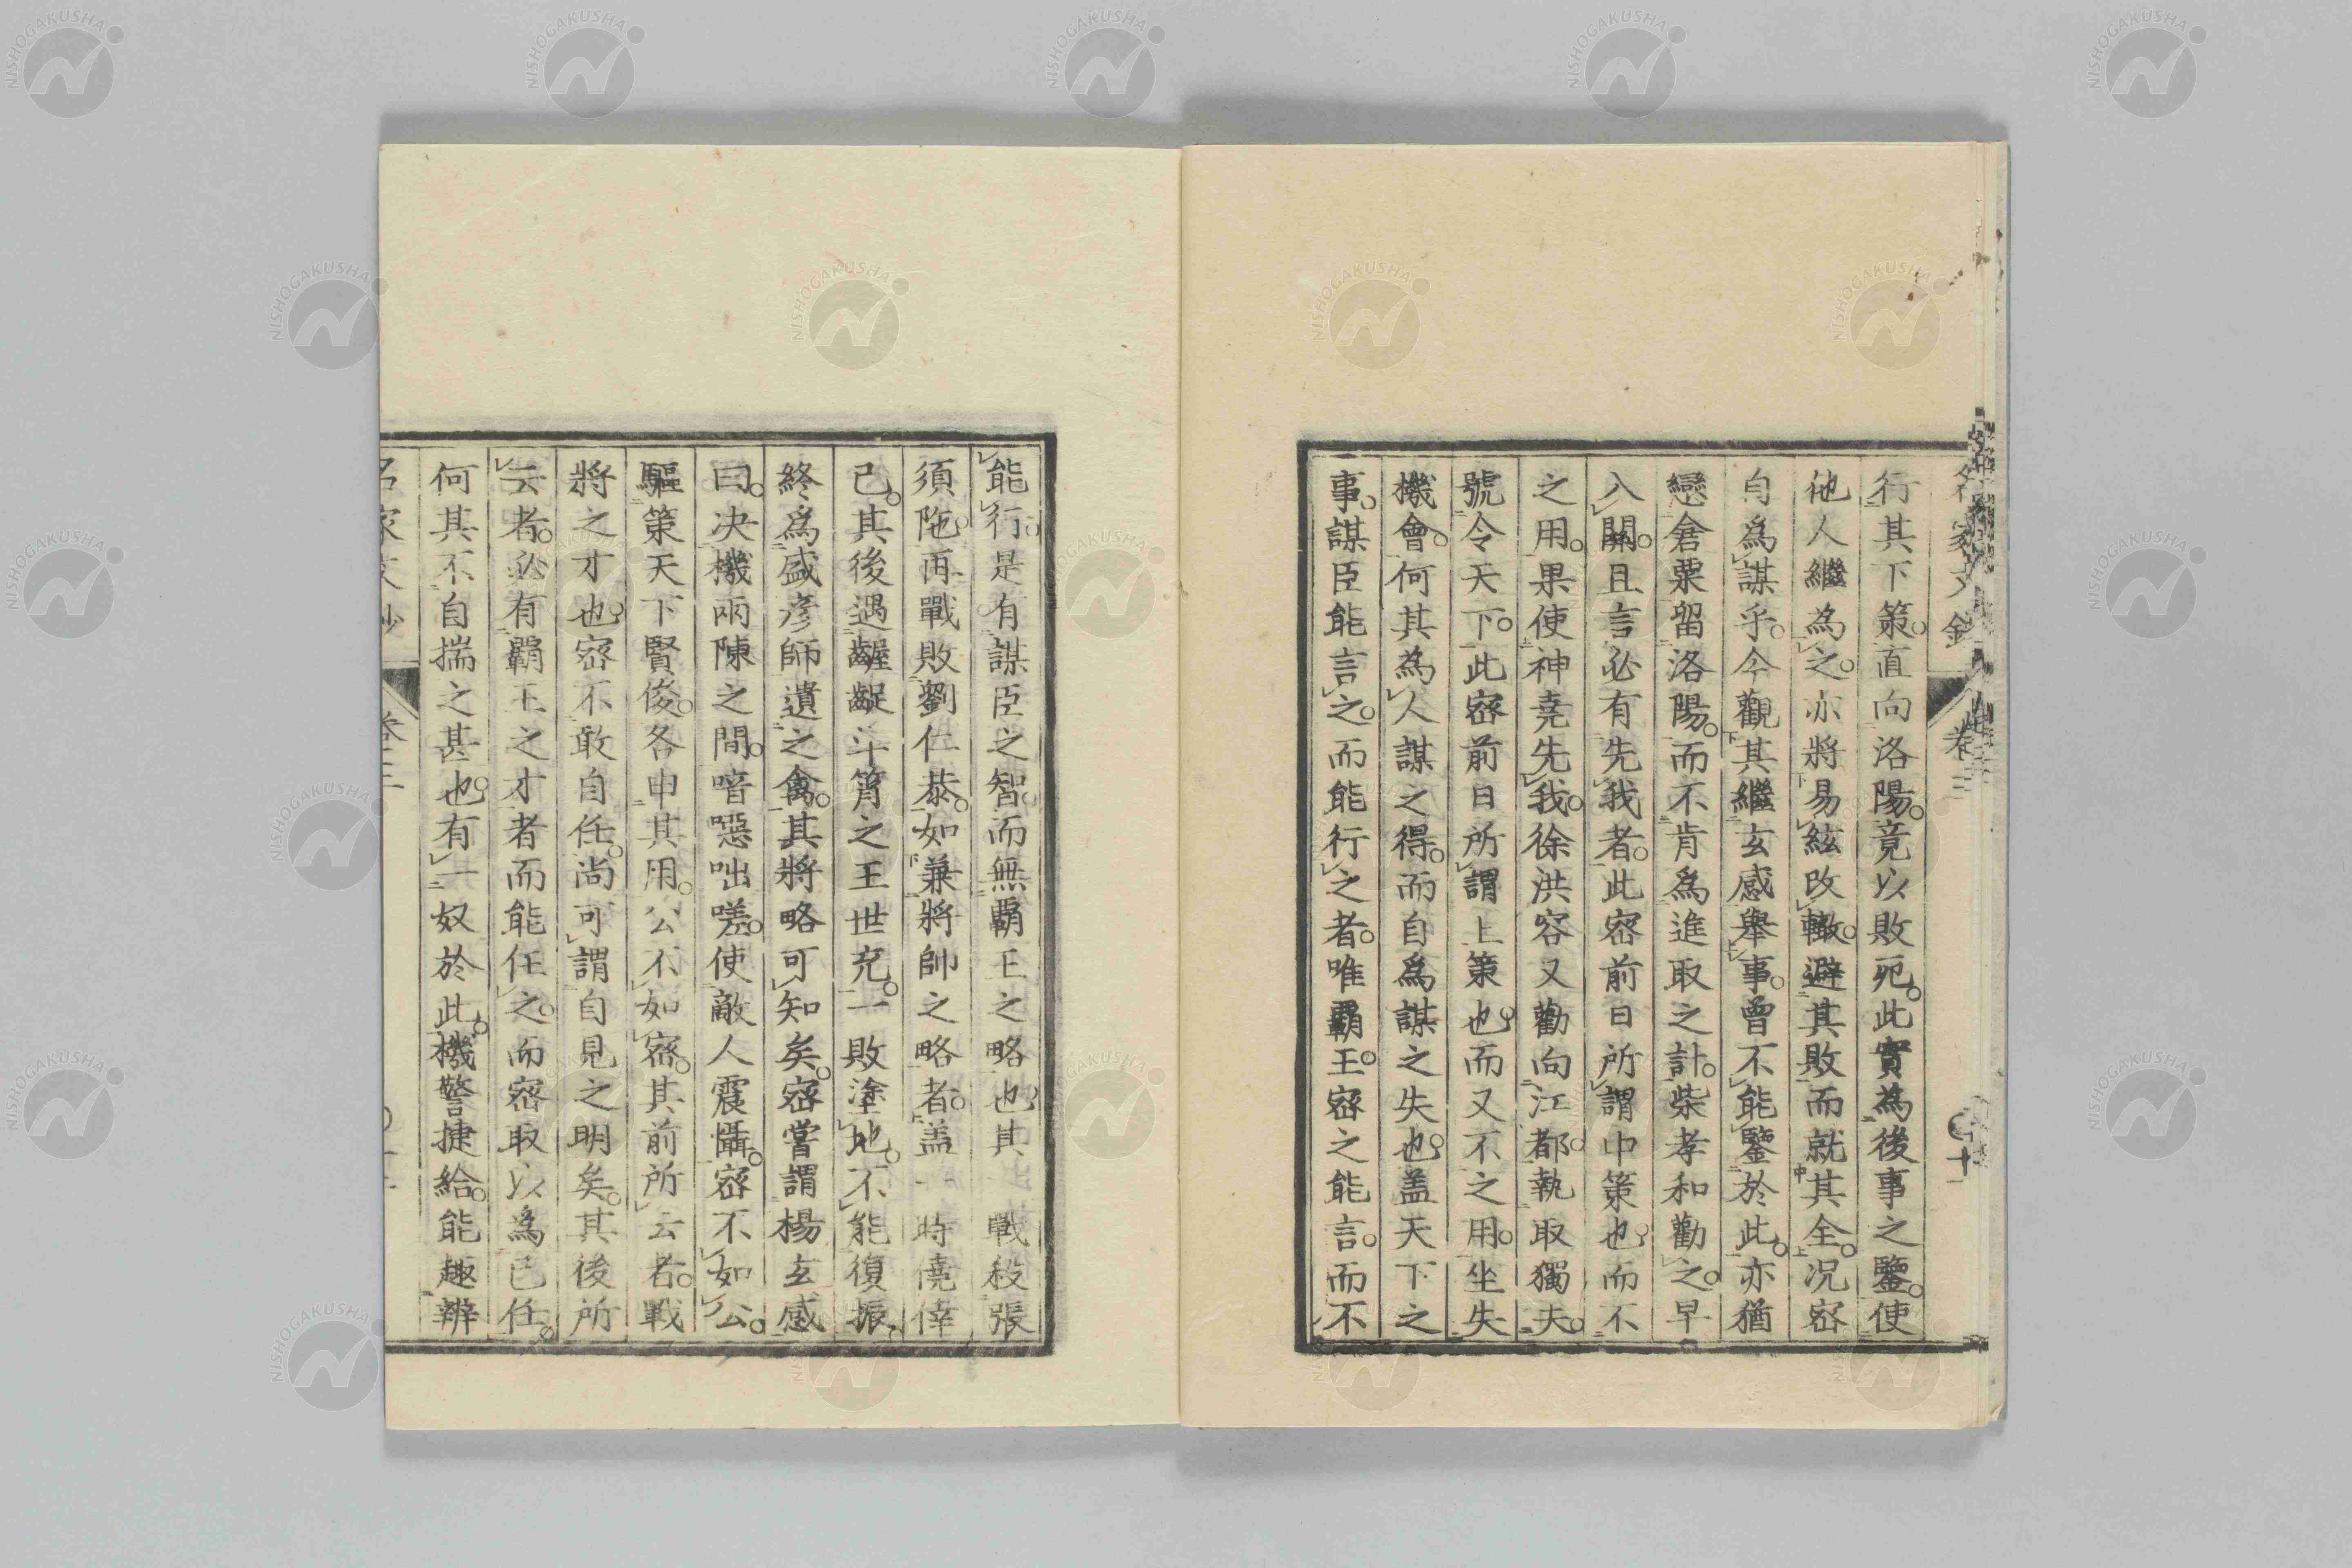 行其下策直向洛陽竟以敗死此實為後事之鑒使
他人繼為之亦將易絃改轍避其敗而就其全况密
自爲謀乎今觀其繼玄感舉事曾不能鑒於此亦猶
戀倉粟留洛陽而不肯爲進取之計柴孝和勸之早
入關且言必有先我者此密前日所謂中策也而不
之用果使神堯先我徐洪容又勸向江都執取獨夫
號令天下此密前日所謂上策也而又不之用坐失
機會何其為人謀之得而自爲謀之失也盖天下之
事謀臣能言之而能行之者唯霸王密之能言而不
能行是有謀臣之智而無覇王之略也其 戰殺張
須陁再戰敗劉仁恭如兼將帥之略者盖一時僥倖
已其後遇齷齪斗筲之王世充一敗塗地不能復振
終爲盛彦師遺之禽其將略可知矣密嘗謂楊玄感
曰决機兩陳之間喑噁咄嗟使敵人震懾密不如公
驅策天下賢俊各申其用公不如密其前所云者戰
將之才也密不敢自任尚可謂自見之明矣其後所
云者必有覇王之才者而能任之而密取以爲已任
何其不自揣之甚也有一奴於此機警捷給能趣辨
名家文抄 卷三
NISHOGAKUSHA